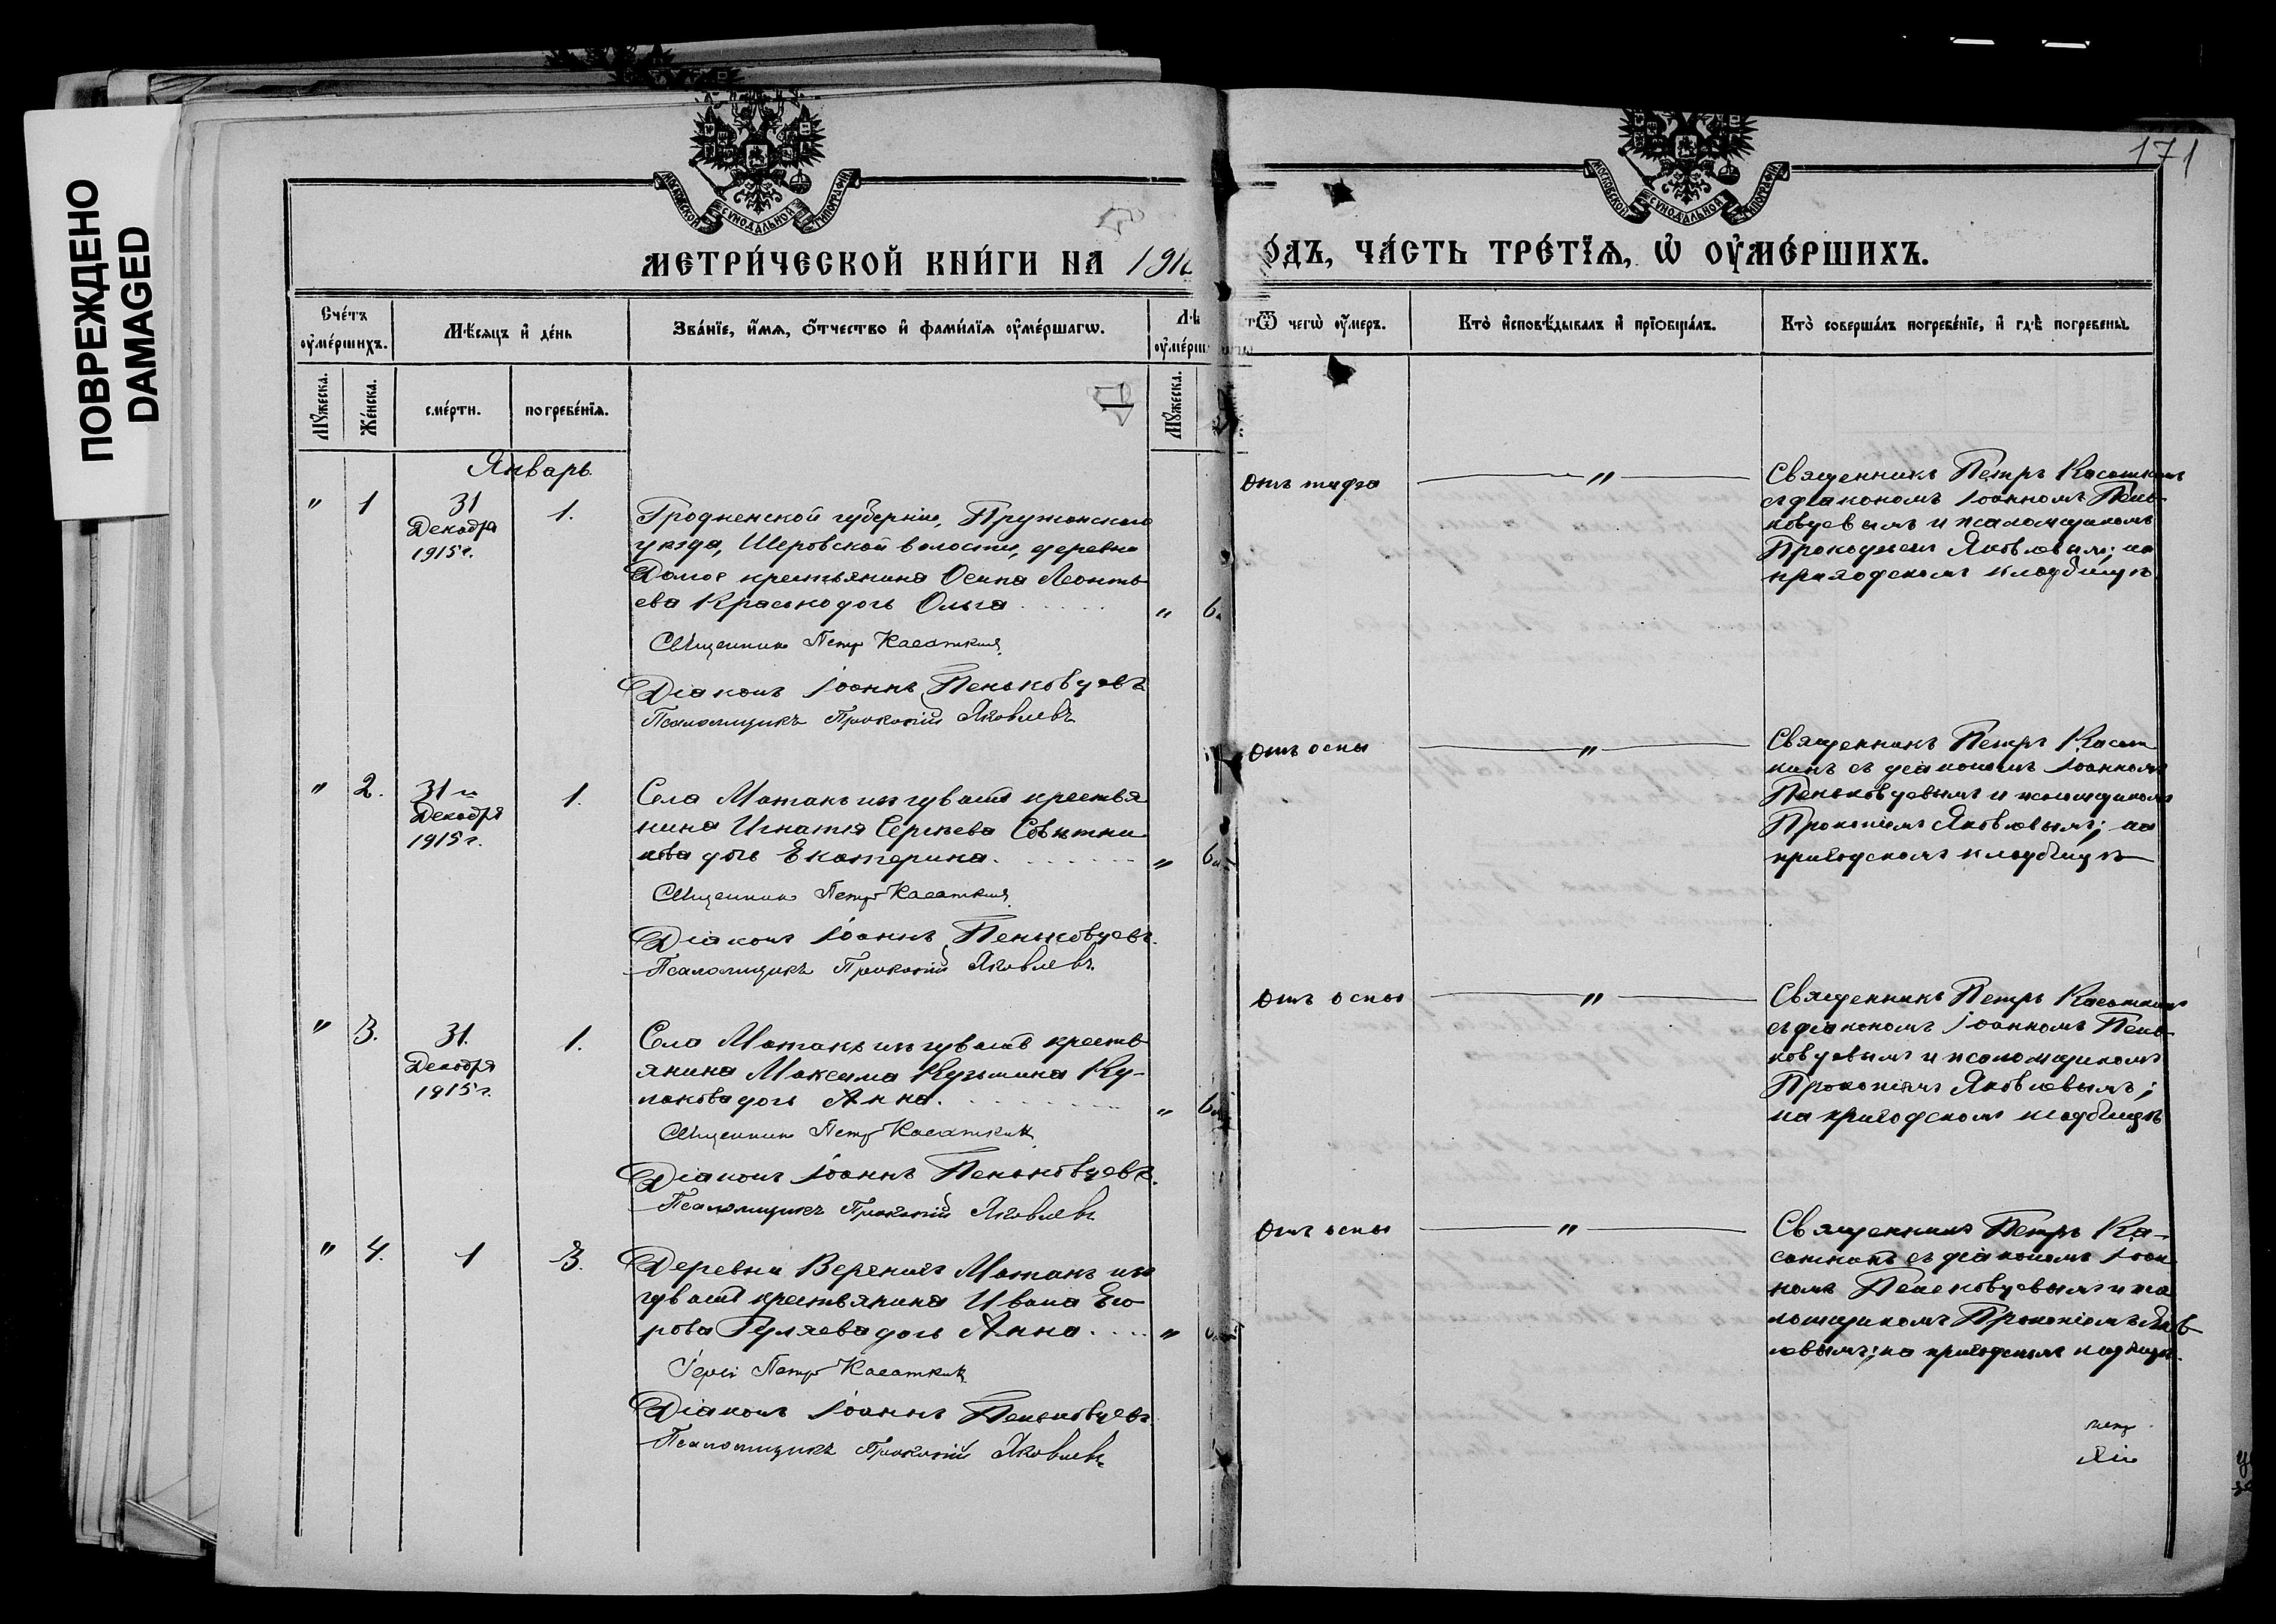 ПОВРЕЖДЕНО
DAMAGED
МОСКОВСКОЙ СѴНОДАЛЬНОЙ ТИПОГРАФІИ
МОСКОВСКОЙ СѴНОДАЛЬНОЙ ТИПОГРАФІИ
171
МЕТРИ́ЧЕСКОЙ КНИ́ГИ НА 191
О́ДЪ, ЧА́СТЬ ТРЕ́ТЇѦ, Ѡ҆ ОУ҆МЕ́РШИХЪ.
Счéтъ
оу҆мéршихъ.
Мѣ́сѧцъ и҆ дéнь
Звáнїе, и҆́мѧ, ѻ҆́тчество и҆ фамѝлїѧ оу҆мéршагѡ.
Лѣ
оу҆мéрш
Мꙋ́жеска.
Жéнска.
смéрти.
погребéнїѧ.
Мꙋ́жеска.
Ѿ чегѡ̀ оу҆́меръ.
Кто̀ и҆сповѣ́дывалъ и҆ прїѡбщáлъ.
Кто̀ совершáлъ погребéнїе, и҆ гдѣ̀ погребены̀.
Январь.
" 1
31
Декабря
1915 г.
1.
Гродненской губерніи, Пружанскаго
уѣзда, Шеровской волости, деревни
крестьянина Осипа Леонть-
ева дочь Ольга
" 6
Священникъ Петръ Касаткинъ
Діаконъ Іоаннъ Пеньковцевъ
Псаломщикъ Прокопій Яковлевъ
отъ тифа
"
Священникъ Петръ Касаткинъ
съ діакономъ Іоанномъ Пень-
ковцевымъ и псаломщикомъ
Прокопіемъ Яковлевымъ; на
приходскомъ кладбищѣ
" 2.
31
Декабря
1915 г.
1.
Села Матакъ изъ чувашъ крестья
нина Игнатія Сергѣева Совѣтни
кова дочь Екатерина.
" 6
Священникъ Петръ Касаткинъ
Діаконъ Іоаннъ Пеньковцевъ.
Псаломщикъ Прокопій Яковлевъ.
отъ оспы
"
Священникъ Петръ Касат
кинъ съ діакономъ Іоанномъ
Пеньковцевымъ и псаломщикомъ
Прокопіемъ Яковлевымъ; на
приходскомъ кладбищѣ
" 3.
31.
Декабря
1915 г.
1.
Села Матакъ изъ чувашъ кресть
янина Максима Кузьмина Ку-
лакова дочь Анна.
" 6
Священникъ Петръ Касаткинъ
Діаконъ Іоаннъ Пеньковцевъ.
Псаломщикъ Прокопій Яковлевъ
отъ оспы
"
Священникъ Петръ Касаткинъ
съ діакономъ Іоанномъ Пень-
ковцевымъ и псаломщикомъ
Прокопіемъ Яковлевымъ;
на приходскомъ кладбищѣ
" 4.
1
3.
Деревни Верхнихъ Матакъ изъ
чувашъ крестьянина Ивана Его
рова Гуляева дочь Анна
"
Іерей Петръ Касаткинъ
Діаконъ Іоаннъ Пеньковцевъ.
Псаломщикъ Прокопій Яковлевъ
отъ оспы
"
Священникъ Петръ Ка-
саткинъ съ діакономъ Іоан
номъ Пеньковцевымъ и пса
ломщикомъ Прокопіемъ Яков
левымъ; на приходскомъ кладбищѣ.